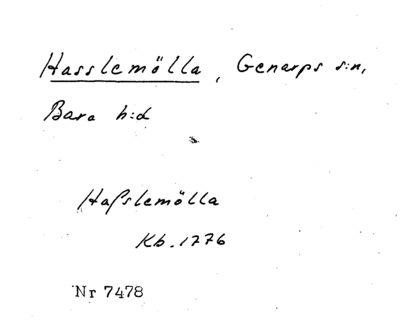 Hasslemölla, Genarps s:n,
Bara h:d
Haſslemölla
Kb. 1776
Nr 7478